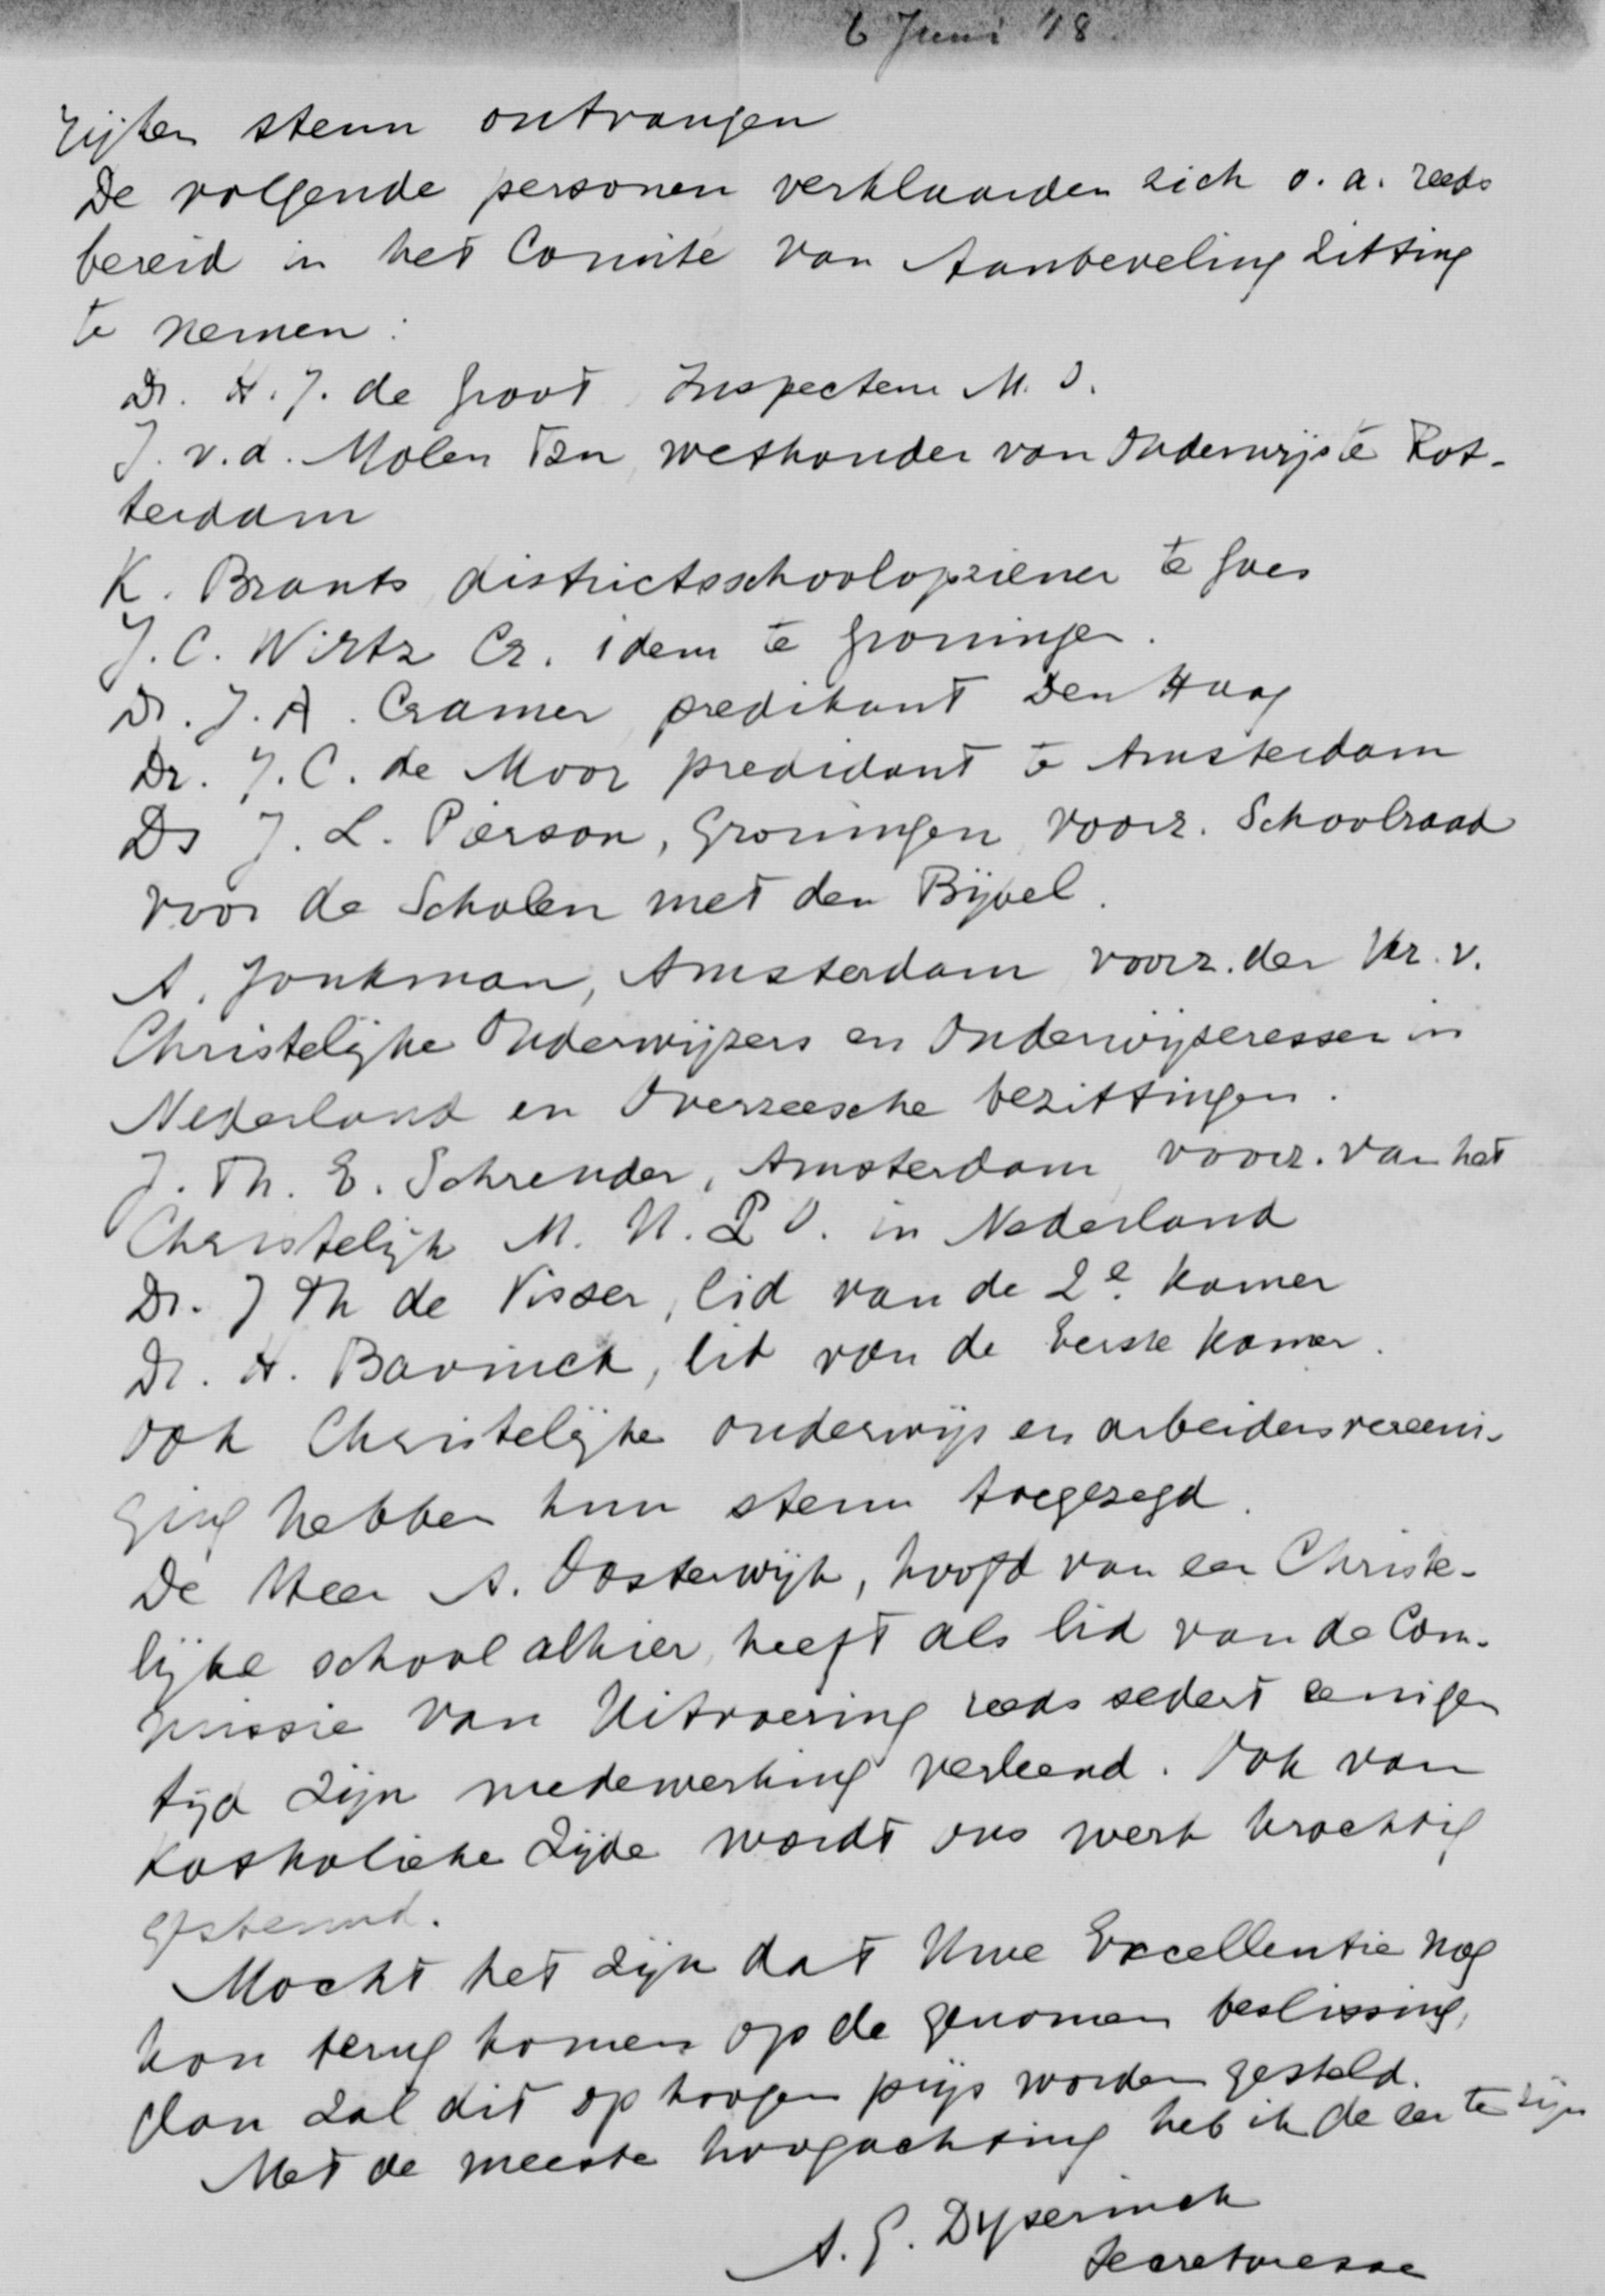 6 Juni '18.
zijden steun ontvangen
De volgende personen verklaarden zich o.a. reeds
bereid in het Comité van Aanbeveling zitting
te nemen:
Dr. H. J. de Groot, Inspecteur M. O.
J. v.d. Molen Tzn, wethouder van Onderwijs te Rot-
terdam
K. Brants, districtsschoolopziener te Goes
J. C. Wirtz Cz. idem te Groningen.
Dr. J. A. Cramer, predikant Den Haag
Dr. J. C. de Moor predidant te Amsterdam
Ds J. L. Pierson, Groningen, voorz. Schoolraad
voor de Scholen met den Bijbel.
A. Jonkman, Amsterdam, voorz. der Ver. v.
Christelijke Onderwijzers en Onderwijzeressen in
Nederland en Overzeesche bezittingen.
J. Th. E. Schreuder, Amsterdam, voorz. van het
Christelijk M. U. L O. in Nederland
Dr. J Th de Visser, lid van de 2e Kamer
Dr. H. Bavinck, lid van de Eerste Kamer.
Ook Christelijke onderwijs en arbeidersvereeni-
ging hebben hun steun toegezegd.
De Heer A. Oosterwijk, hoofd van een Christe-
lijke school alhier, heeft als lid van de Com-
missie van Uitvoering reeds sedert eenigen
tijd zijn medewerking verleend. Ook van
Katholieke zijde wordt ons werk krachtig
gesteund.
Mocht het zijn dat Uwe Excellentie nog
kon terug komen op de genomen beslissing,
dan zal dit op hoogen prijs worden gesteld.
Met de meeste hoogachting heb ik de eer te zijn
A. G. Dyserinck
Secretaresse